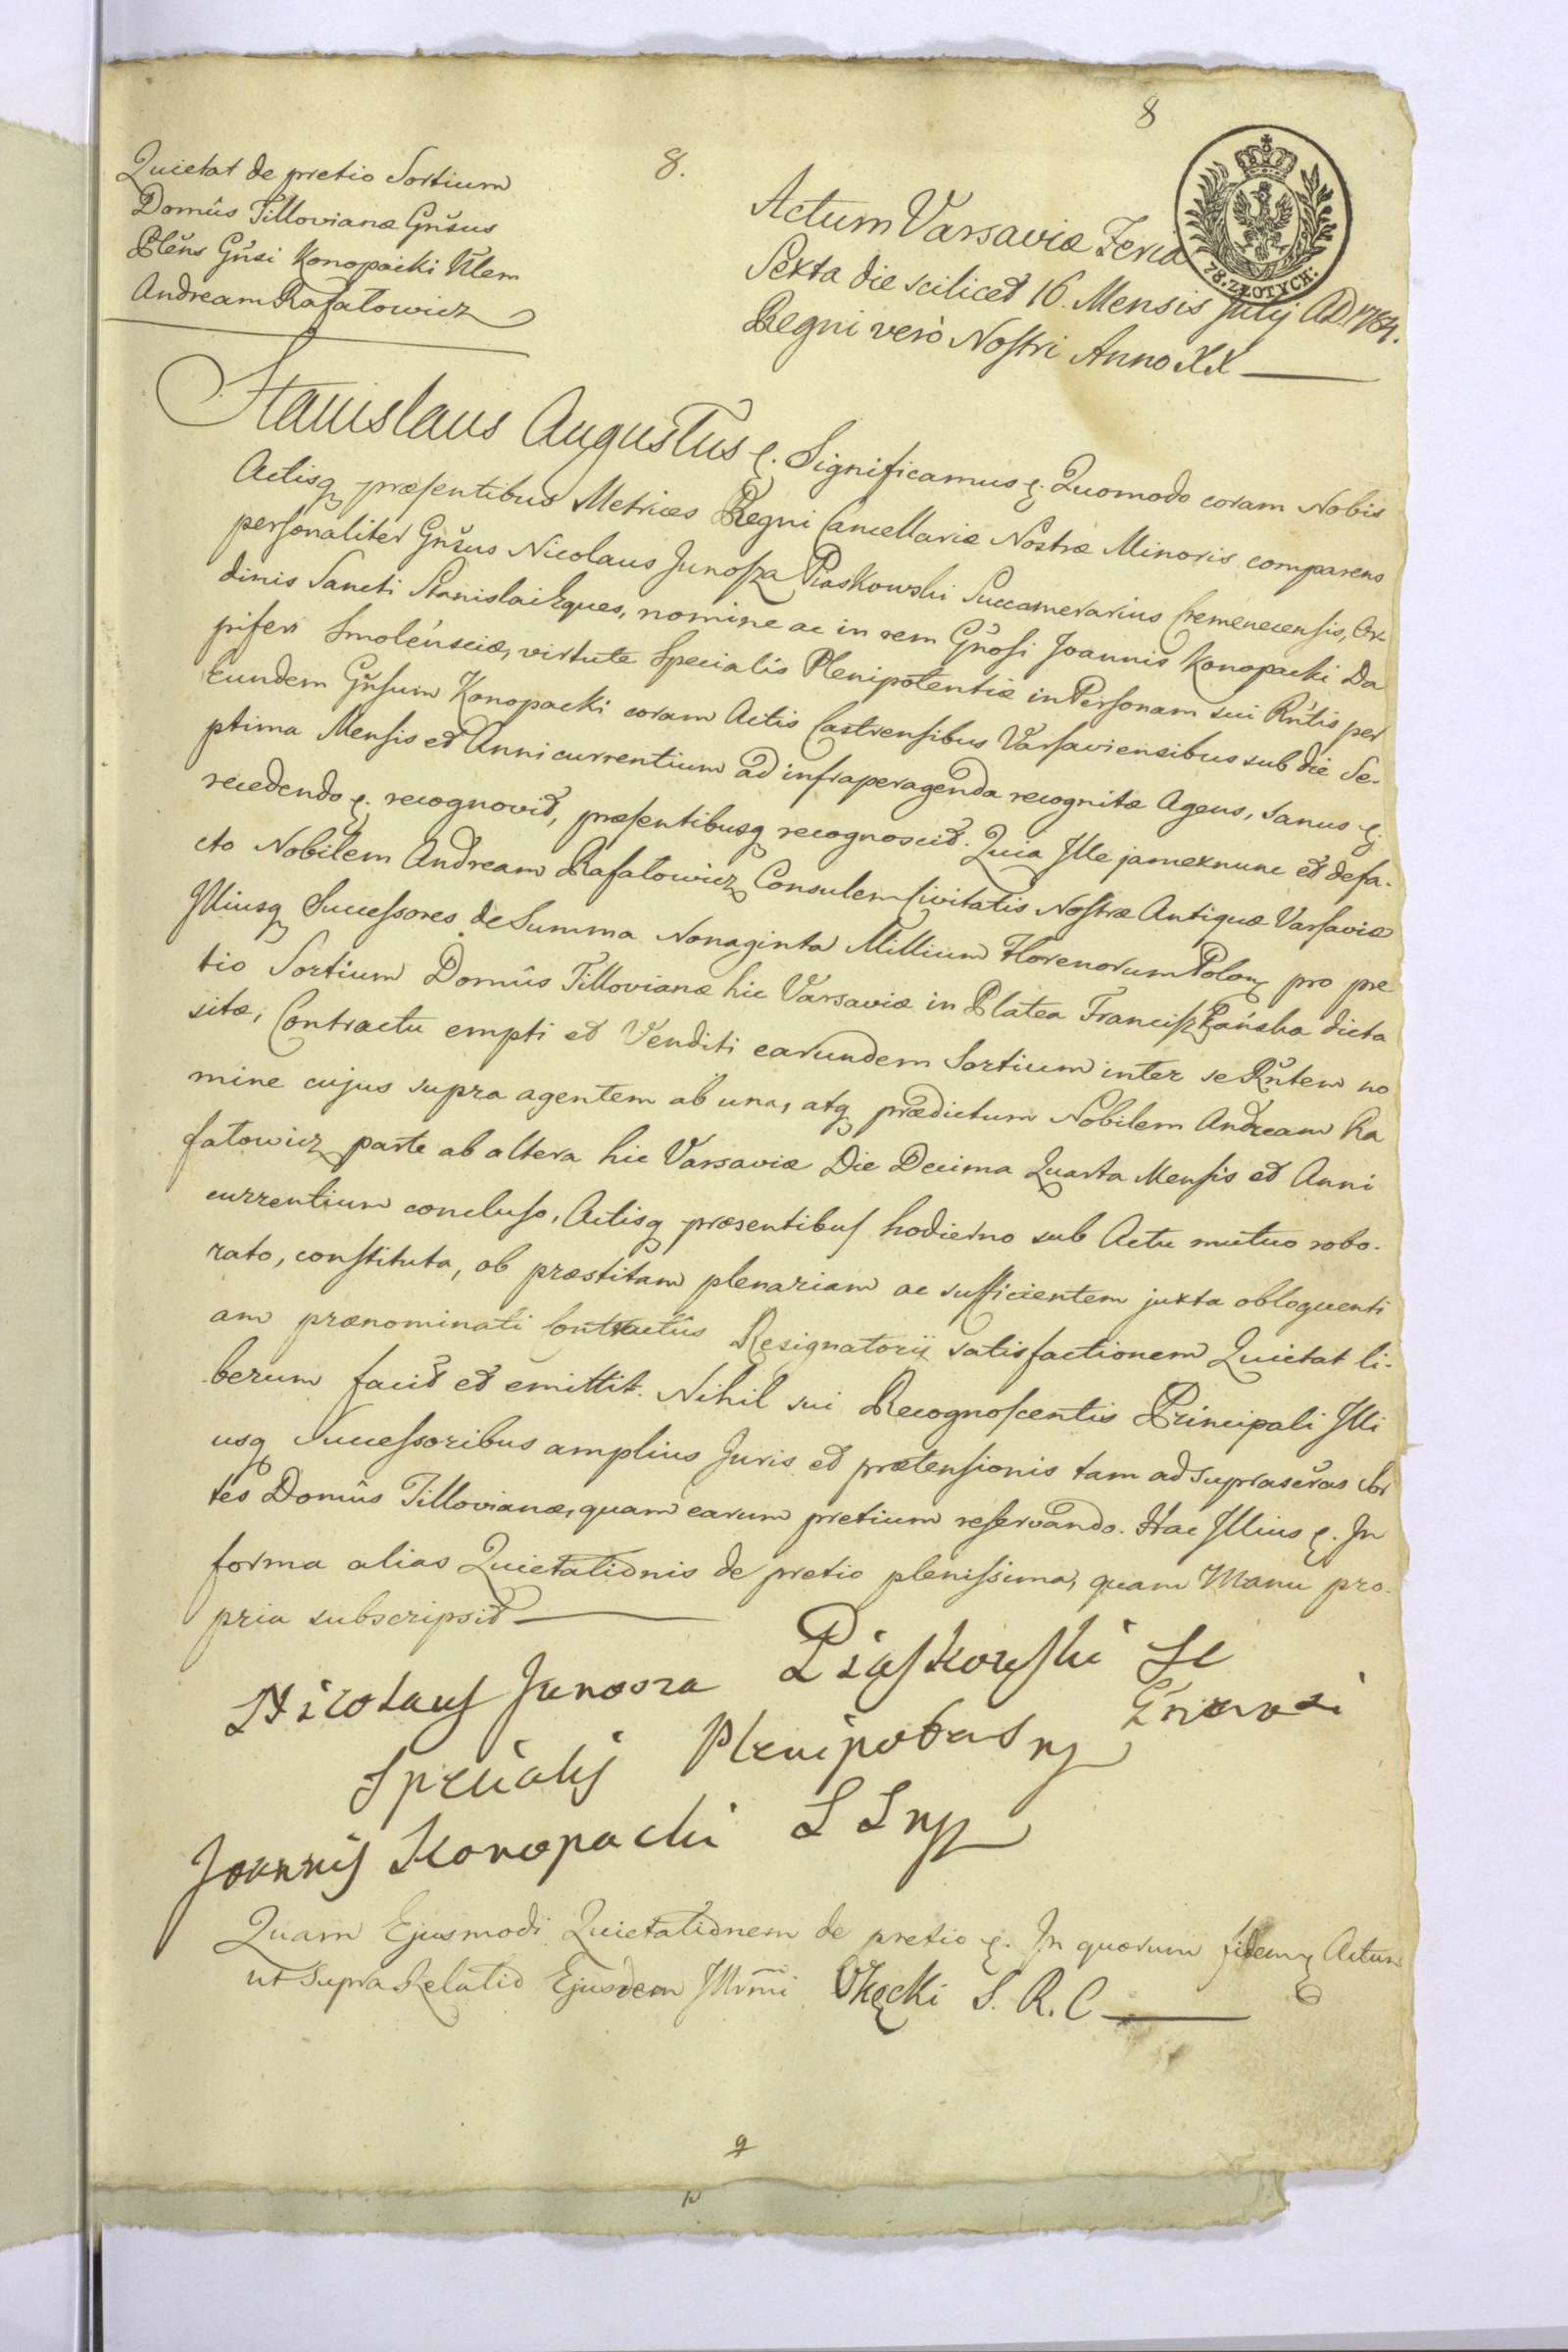 8
8.
Quietat de pretio Sortium
Domûs Tillovianæ Gn̄sus
Plēns Gn̄si Konopacki Nlem
Andream Rafałowicz
78. ZŁOTYCH.
Actum Varsaviæ Feria
Sexta die scilicet 16. Mensis Julij AD. 1784.
Regni verò Nostri Anno XX
Stanislaus Augustus ꝛ. Significamus ꝛ. Quomodo coram Nobis
Actisq præsentibus Metrices Regni Cancellariæ Nostræ Minoris comparens
personaliter Gn̄sus Nicolaus Junosza Piaskowski Succamerarius Cremenecensis, Or-
dinis Sancti Stanislai Eques, nomine ac in rem Gn̄osi Joannis Konopacki Da
piferi Smolensciæ, virtute Specialis Plenipotentiæ in Personam sui Rn̄tis per
Eundem Gn̄sum Konopacki coram Actis Castrensibus Varsaviensibus sub die Se-
ptima Mensis et Anni currentium ad infraperagenda recognitæ Agens, sanus ꝛ.
recedendo ꝛ. recognovit, præsentibusq recognoscit. Quia Ille jam exnunc et defa-
cto Nobilem Andream Rafałowicz Consulem Civitatis Nostræ Antiquæ Varsaviæ
Illiusq Successores de Summa Nonaginta Millium Florenorum Polon pro pre
tio Sortium Domûs Tillovianæ hic Varsaviæ in Platea Franciszkańska dicta
sitæ, Contractu empti et Venditi earundem Sortium inter se Rn̄tem no
mine cujus supra agentem ab una, atq prædictum Nobilem Andream Ra
fałowicz parte ab altera hic Varsaviæ Die Decima Quarta Mensis et Anni
currentium concluso, Actisq præsentibus hodierno sub Actu mutuo robo-
rato, constituta, ob præstitam plenariam ac sufficientem juxta obloquenti
am prænominati Contractûs Resignatorij satisfactionem Quietat li-
berum facit et emittit. Nihil sui Recognoscentis Principali Illi
usq Successoribus amplius Juris et prætensionis tam ad suprascr̄as Sor
tes Domûs Tillovianæ, quam earum pretium reservando. Hac Illius ꝛ. In
forma alias Quietationis de pretio plenissima, quam Manu pro-
pria subscripsit
Nicolaus Junosza Piaskowski
Specialis Plenipotens
Joannis Konopacki
Quam Ejusmodi Quietationem de pretio ꝛ. In quorum fidem ꝛ Actum
ut supra Relatio Ejusdem Illr̄mi Okęcki S. R. C
9